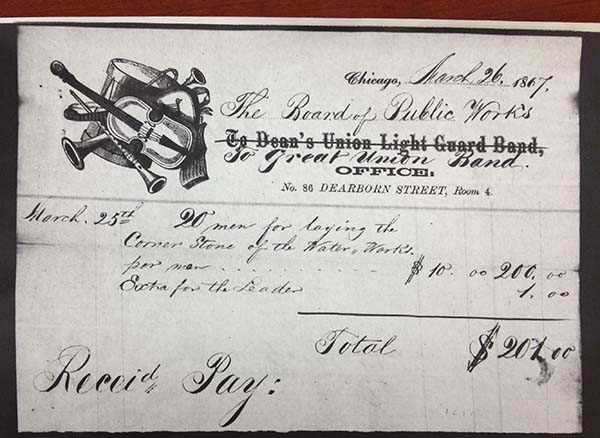 Chicago, March 26, 1867.
The Board of Public Works
To Dean's Union Light Guard Band,
To Great Union Band.
OFFICE:
No. 86 DEARBORN STREET, Room 4.
March. 25th 20 men for laying the
Corner Stone of the Water, Works.
per man . . . . . . . . . . . $ 10. 00 200. 00
Extra for the Leader 1. 00
Total $ 201. 00
Receid Pay: